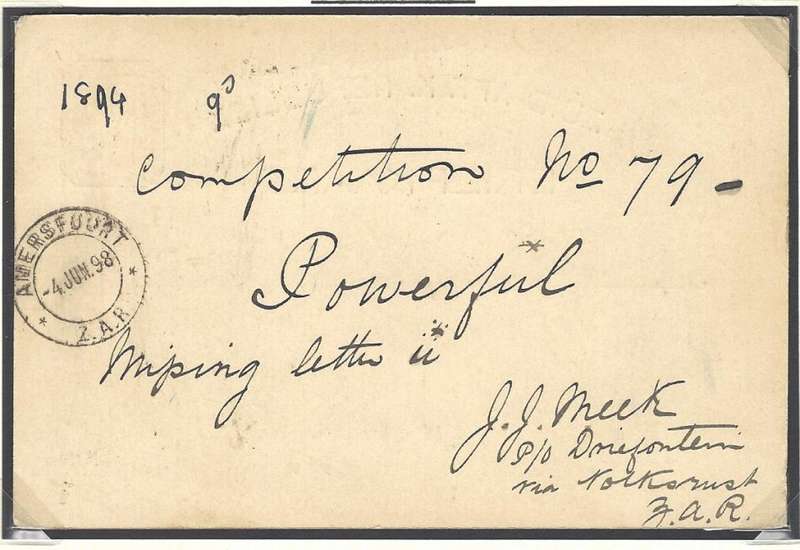 1894 9d
Competition No 79 -
AMERSFOORT
-4 JUN. 98
Z.A.R.
Powerful
Missing letter "u"
J. J. Meek
P/o Driefontein
via Volksrust
Z.A.R.